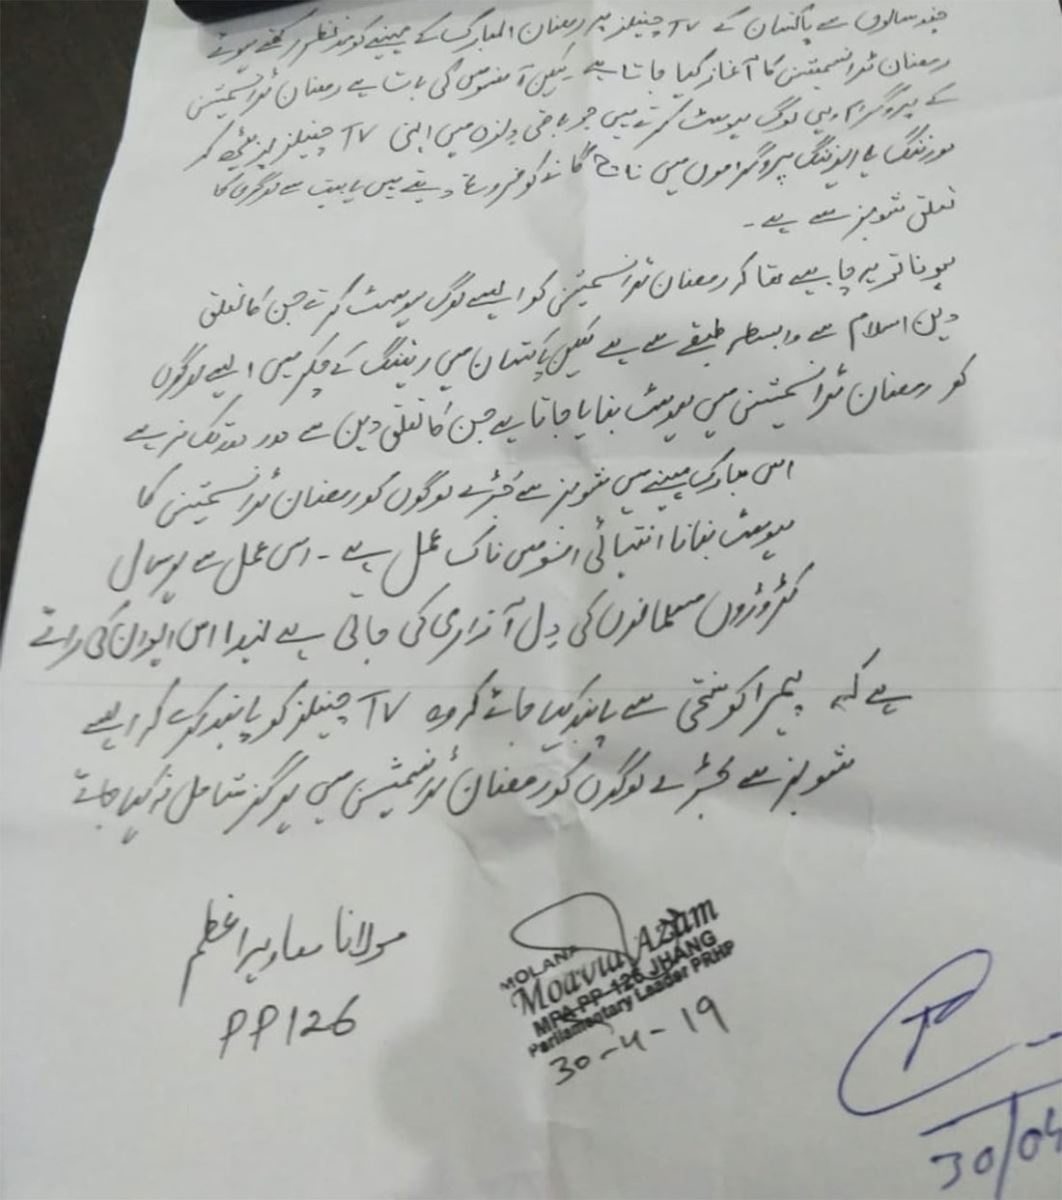 چند سالوں سے پاکستان کے TV چینلز پر رمضان المبارک کے مہینے کو مدنظر رکھتے ہوئے
رمضان ٹرانسمیشن کا آغاز کیا جاتا ہے لیکن افسوس کی بات ہے رمضان ٹرانسمیشن
کے پروگرام وہی لوگ ہوسٹ کرتے ہیں جو باقی دنوں میں اپنی TV چینلز پر بیٹھ کر
مورننگ یا ایوننگ پروگراموں میں ناچ گانے کو فروغ دیتے ہیں یا بہت سے لوگوں کا
تعلق شوبز سے ہے۔
ہونا تو یہ چاہیے تھا کہ رمضان ٹرانسمیشن کو ایسے لوگ ہوسٹ کرتے جن کا تعلق
دین اسلام سے وابسطہ طبقے سے ہے لیکن پاکستان میں ریٹنگ کے چکر میں ایسے لوگوں
کو رمضان ٹرانسمیشن میں ہوسٹ بنایا جاتا ہے جن کا تعلق دین سے دور دور تک نہ ہے
اس مبارک مہینے میں شوبز سے جڑے لوگوں کو رمضان ٹرانسمیشن کا
ہوسٹ بنانا انتہائی افسوس ناک عمل ہے۔ اس عمل سے ہر سال
کڑوڑوں مسلمانوں کی دل آزاری کی جاتی ہے لہذا اس ایوان کی رائے
ہے کہ پیمرا کو سختی سے پابند کیا جائے کہ وہ TV چینلز کو پابند کرے کہ ایسے
شوبز سے جڑے لوگوں کو رمضان ٹرانسمیشن میں ہرگز شامل نہ کیا جائے
مولانا معاویہ اعظم
PP126
MOLANA
Moavia Azam
MPA PP-126 JHANG
Parliamentary Leader PRHP
30-4-19
30/04